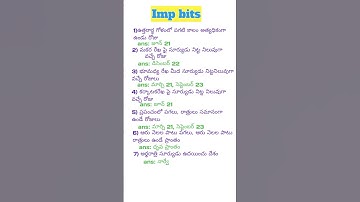 Imp bits
1) ఉత్తరార్ధ గోళంలో పగటి కాలం అత్యధికంగా
ఉండు రోజు
ans: జూన్ 21
2) మకర రేఖ పై సూర్యుడు నిట్ట నిలువుగా
వచ్చే రోజు
ans: డిసెంబర్ 22
3) భూమధ్య రేఖ మీద సూర్యుడు నిట్టనిలువుగా
వచ్చే రోజులు
ans: మార్చి 21, సెప్టెంబర్ 23
4) కర్కాటకరేఖ పై సూర్యుడు నిట్ట నిలువుగా
వచ్చే రోజు
ans: జూన్ 21
5) ప్రపంచంలో పగలు, రాత్రులు సమానంగా
ఉండే రోజులు
ans: మార్చి 21, సెప్టెంబర్ 23
6) ఆరు నెలల పాటు పగలు, ఆరు నెలల పాటు
రాత్రులు ఉండే ప్రాంతం
ans: ధృవ ప్రాంతం
7) అర్ధరాత్రి సూర్యుడు ఉదయించు దేశం
ans: నార్వే